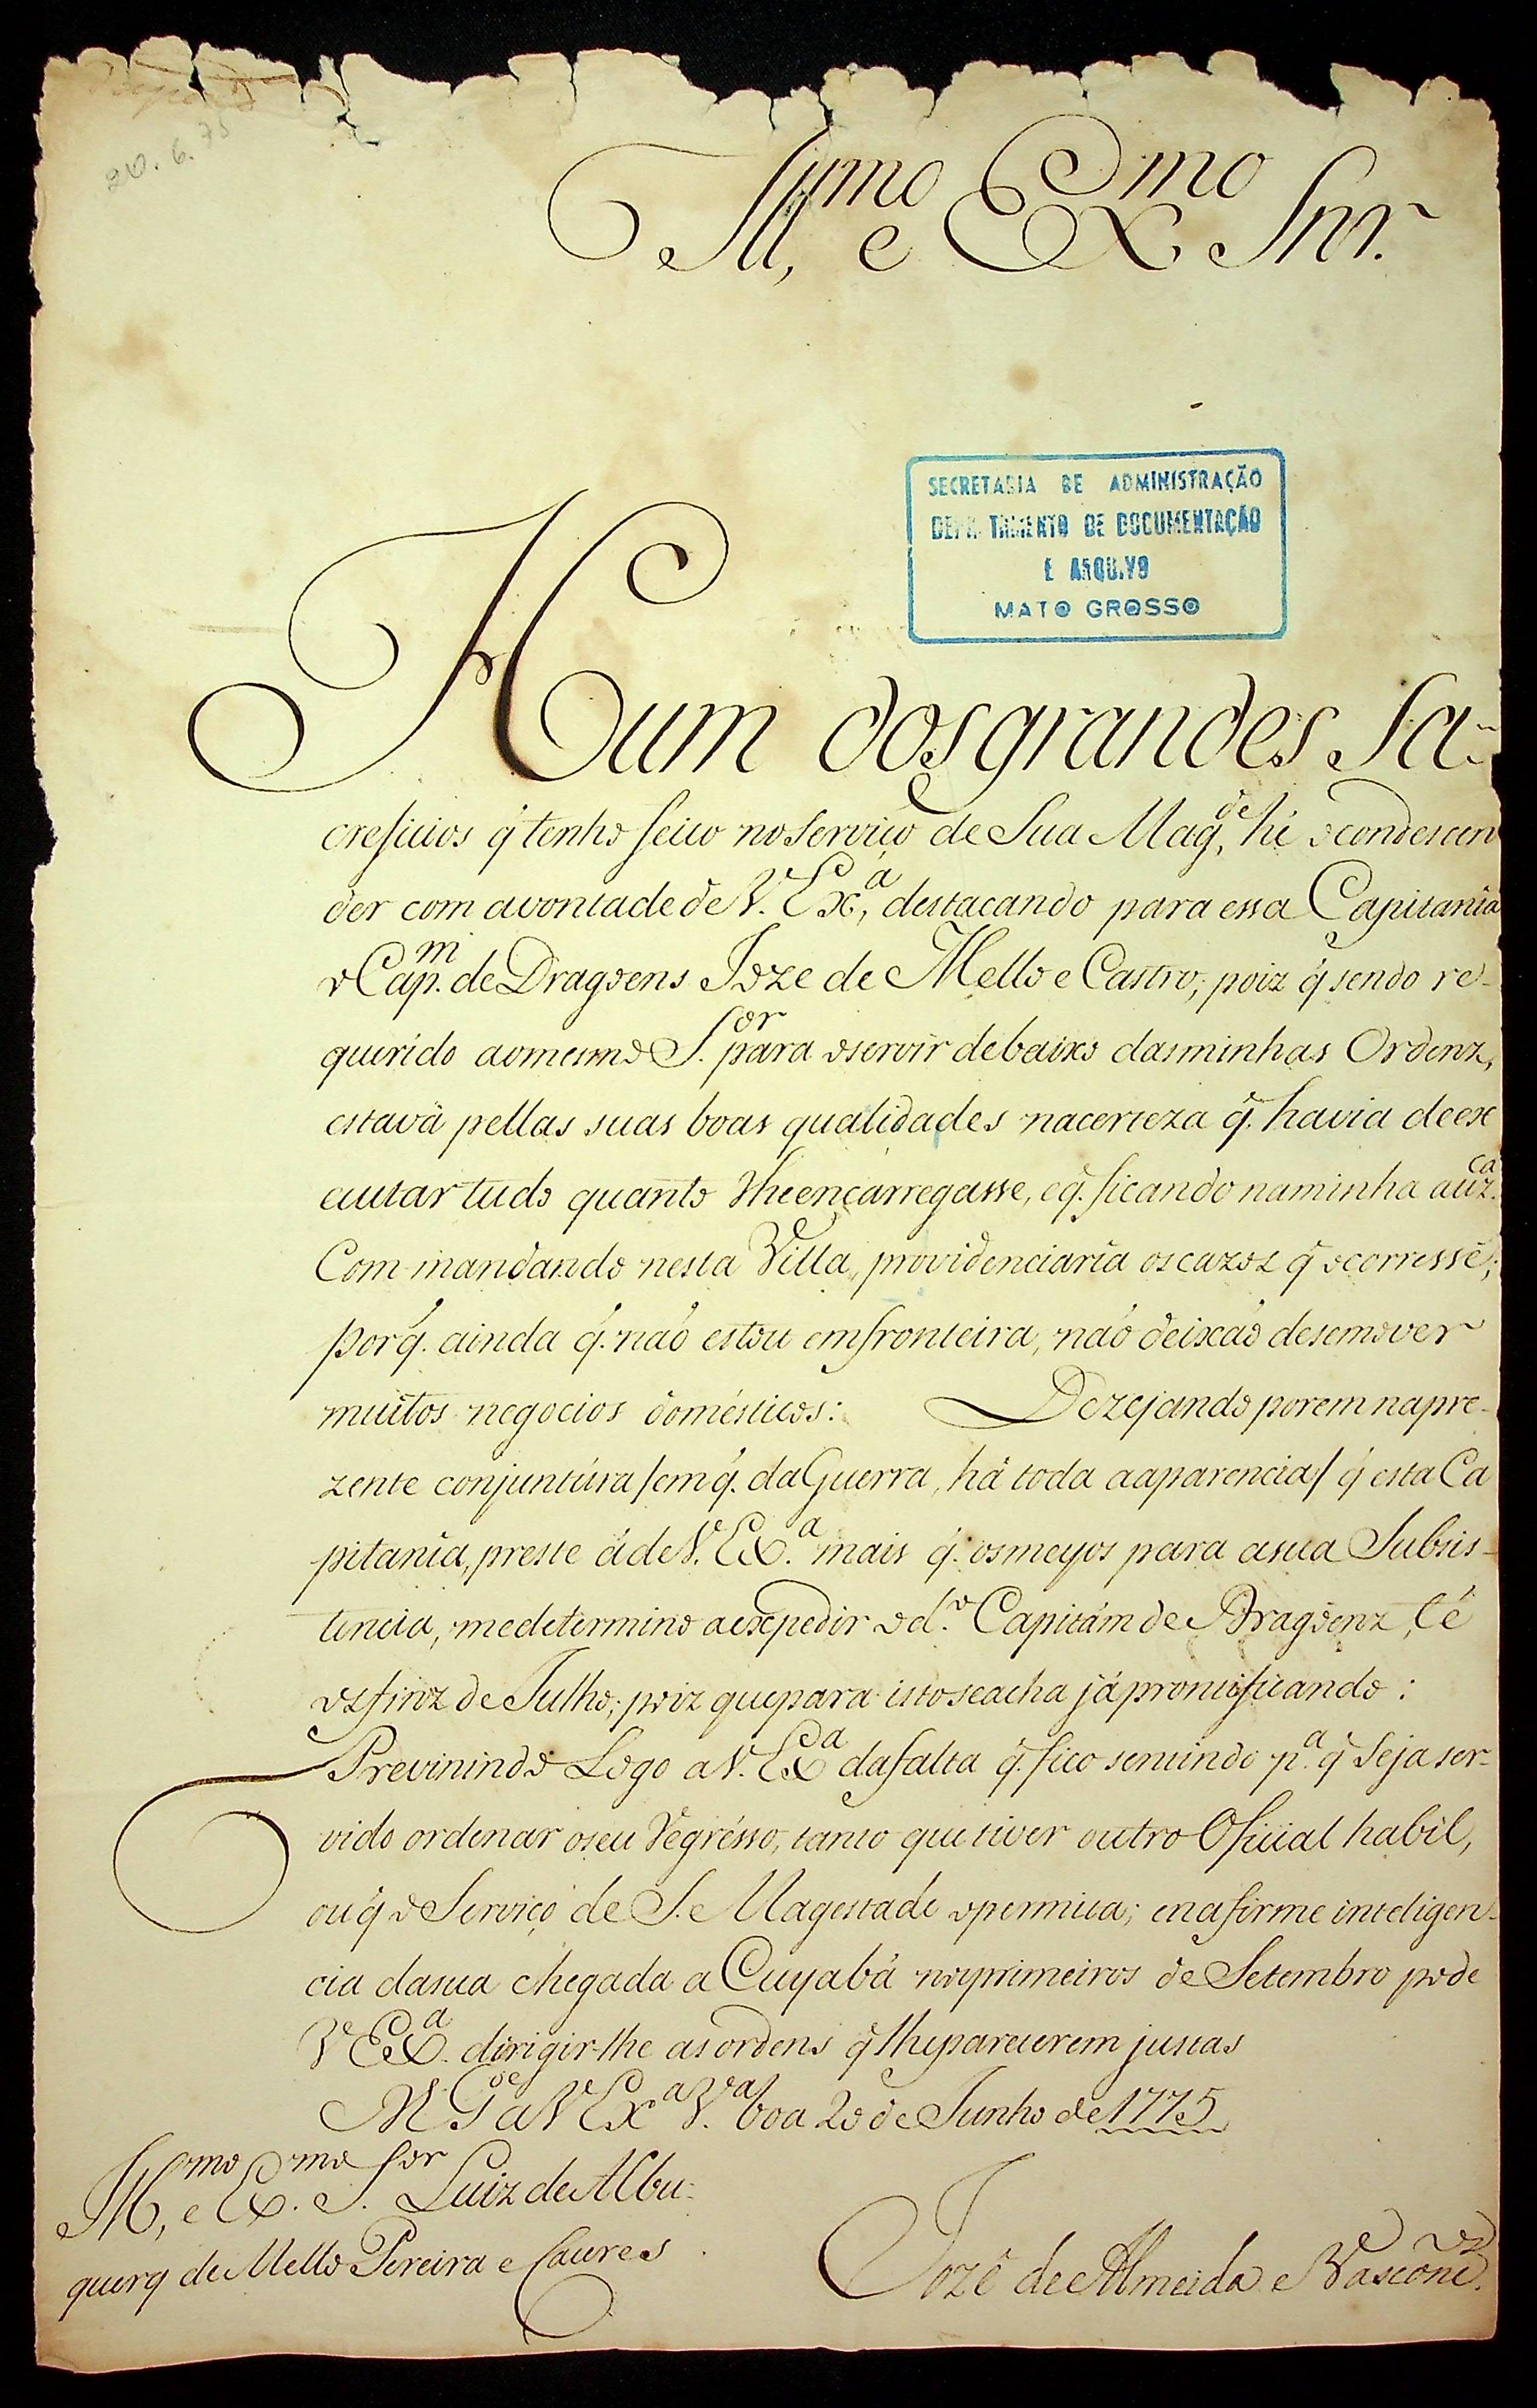 20.6.75
Ill,mo e Exmo Snr.
SECRETARIA DE ADMINISTRAÇÃO
DEPARTAMENTO DE DOCUMENTAÇÃO
E ARQUIVO
MATO GROSSO
Hum dos grandes Sa-
creficios q̃ tenho feito no Serviço de Sua Mag,de hé o condescen
der com a vontade de V. Exa, destacando para essa Capitanîa
o Capm. de Dragoens Joze de Mello e Castro; poiz q̃ sendo re-
querido ao mesmo S.or para o servir debaixo das minhas Ordenz,
estava pellas suas boas qualidades na certeza q̃. havia de ex
cutar tudo quanto lhe encarregasse, e q̃. ficando na minha auz.ca
Commandando nesta Villa, providenciaria os cazoz q̃ ocorressẽ;
porq̃. ainda q̃. naó estou em fronteira, naó deixaó de se mover
muitos negocios domésticos: Dezejando porem na pre-
zente conjuntúra /em q̃. da Guerra, há toda a aparencia/ q̃ esta Ca
pitanîa, preste á de V. Ex.a mais q̃. os meyos para a sua Subsis-
tencia, me determino a expedir o d.o Capitám de Dragoenz, té
oz finz de Julho; poiz que para isto se acha já prontificando:
Previnindo Logo a V. Exa da falta q̃. fico sentindo p.a q̃ Seja ser-
vido ordenar o seu Regrésso, tanto que tiver outro Oficial habil,
ou q̃ o Serviço de S. Magestade o permita; e na firme inteligen-
cia da sua chegada a Cuyabá nos primeiros de Setembro pode
V Exa. dirigir-lhe as ordens q̃ lhe parecerem justas
N. Sr. G.de a V Exa V.a boa 20 de Junho de 1775
Ill,mo e Ex.mo S.or Luiz de Albu-
querq de Mello Pereira e Caceres
Jozé de Almeida e Vasconc.os